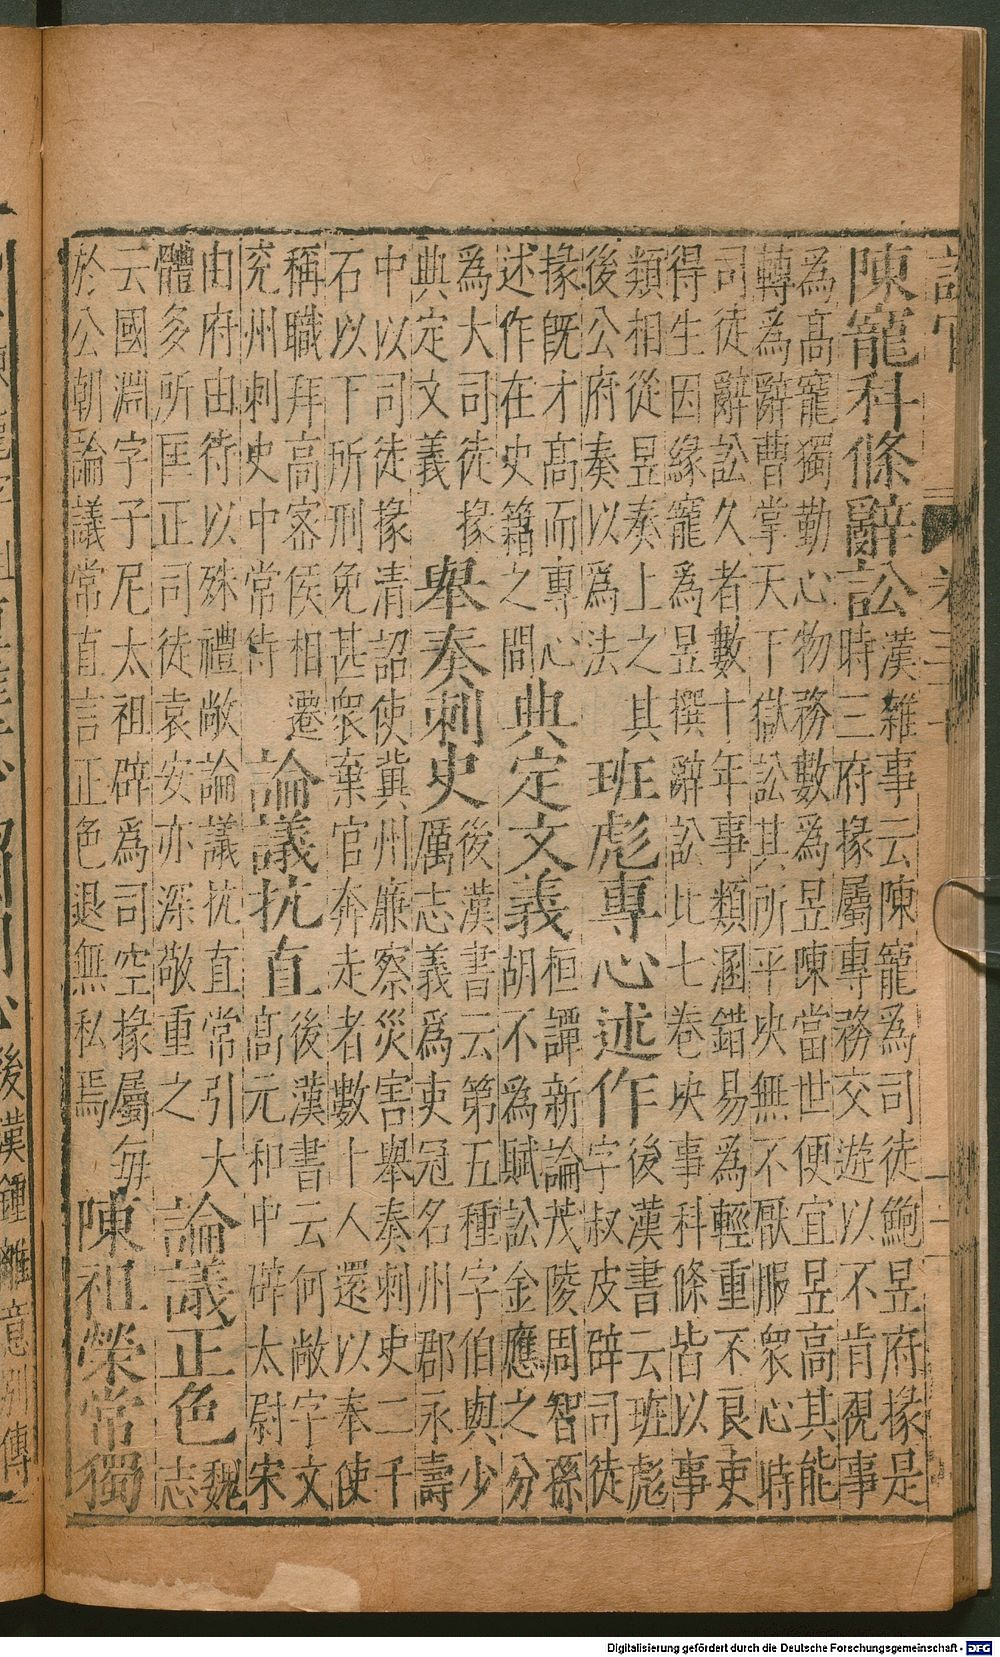 陳寵科條辭訟
漢雜事云陳寵為司徒鮑昱府掾是
時三府掾屬專務交遊以不肯視事
為高寵獨勤心物務數為昱陳當世便宜昱高其能
轉為辭曹掌天下獄訟其所平决無不厭服衆心時
司徒辭訟久者數十年事類溷錯易為輕重不良吏
得生因緣寵為昱撰辭訟比七卷决事科條皆以事
類相從昱奏上之其
後公府奏以為法
班彪專心述作
後漢書云班彪
字叔皮辟司徒
掾既才高而專心
述作在史籍之間
典定文義
桓譚新論茂陵周智孫
胡不為賦訟金應之分
為大司徒掾
典定文義
舉奏刺史
後漢書云第五種字伯與少
厲志義為吏冠名州郡永壽
中以司徒掾清詔使冀州廉察災害舉奏刺史二千
石以下所刑免甚衆棄官奔走者數十人還以奉使
稱職拜高密侯相遷
兖州刺史中常侍
論議抗直
後漢書云何敞字文
高元和中辟太尉宋
由府由待以殊禮敞論議抗直常引大
體多所匡正司徒袁安亦深敬重之
論議正色
魏
志
云國淵字子尼太祖辟為司空掾屬每
於公朝論議常直言正色退無私焉
陳祖榮常獨
後漢鍾離意別傳
Digitalisierung gefördert durch die Deutsche Forschungsgemeinschaft - DFG